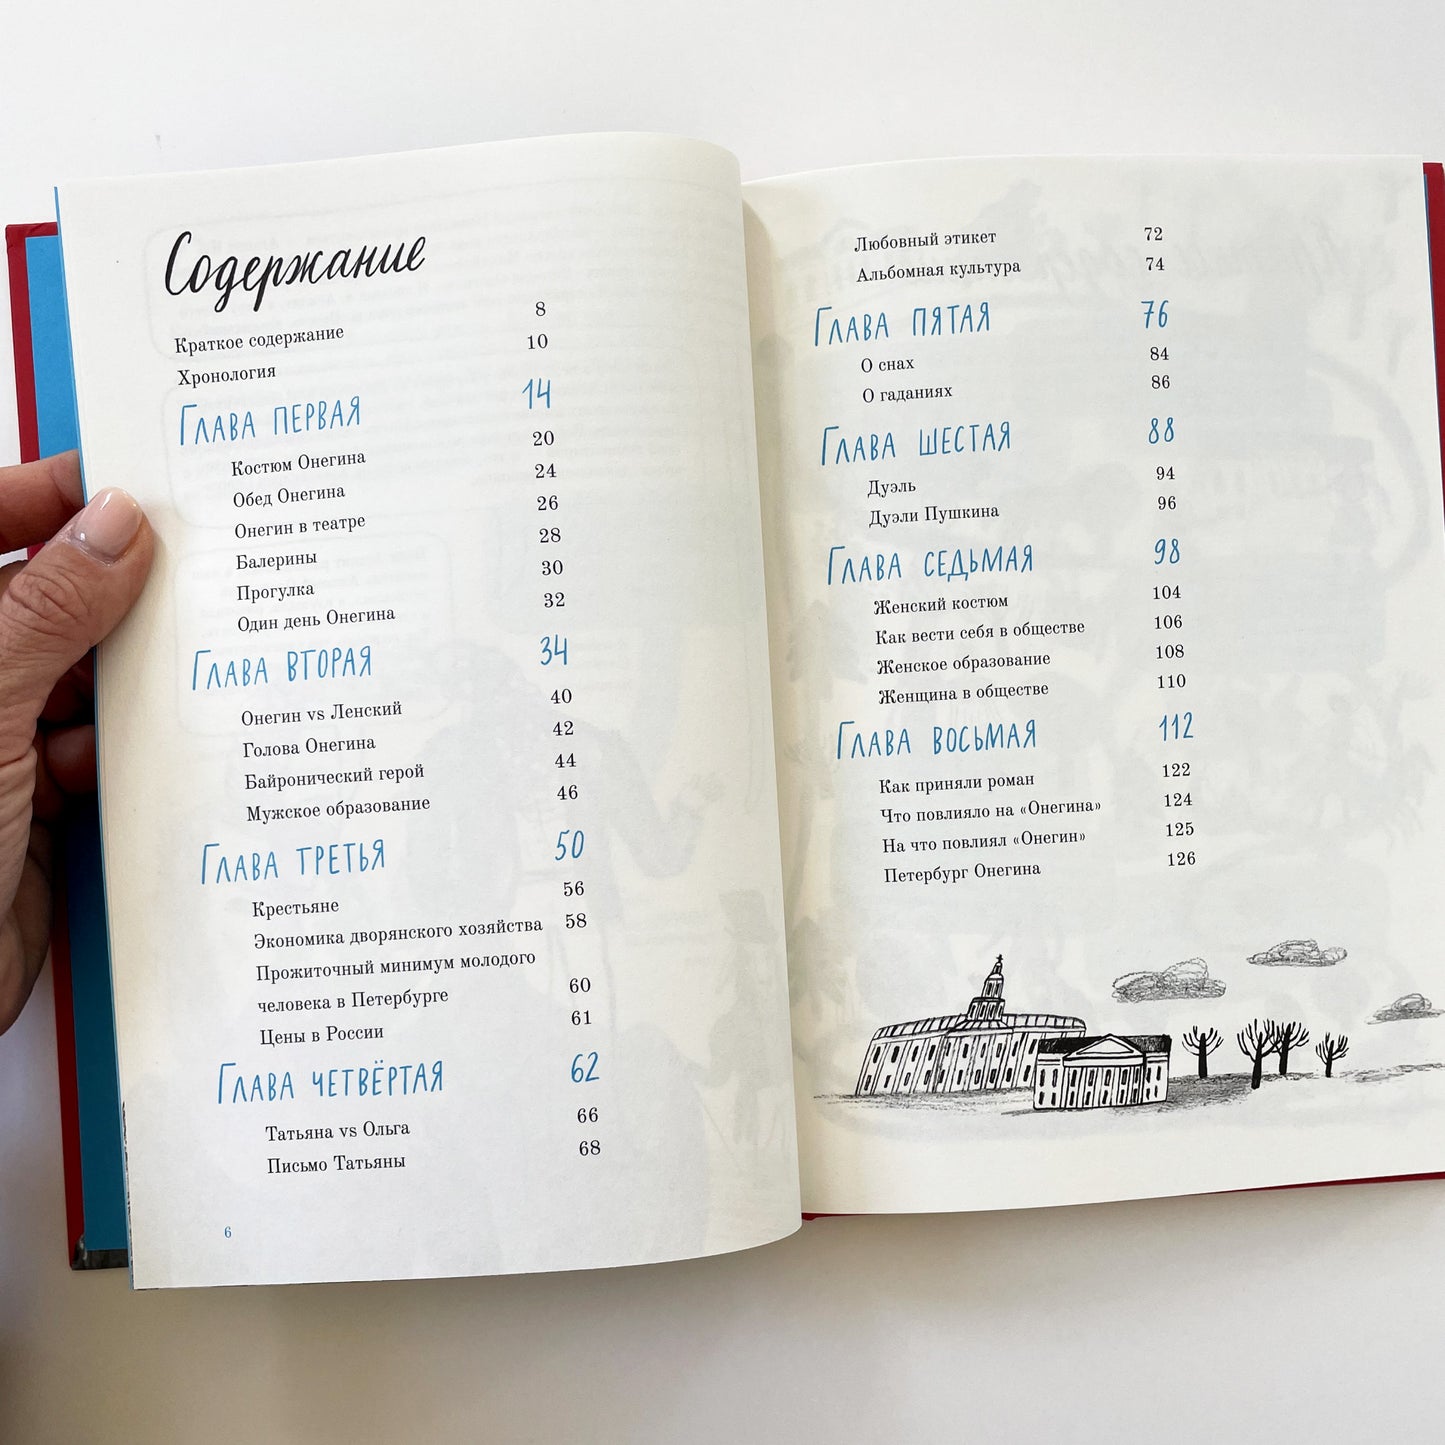 Содержание
Краткое содержание 8
Хронология 10
Глава первая 14
Костюм Онегина 20
Обед Онегина 24
Онегин в театре 26
Балерины 28
Прогулка 30
Один день Онегина 32
Глава вторая 34
Онегин vs Ленский 40
Голова Онегина 42
Байронический герой 44
Мужское образование 46
Глава третья 50
Крестьяне 56
Экономика дворянского хозяйства 58
Прожиточный минимум молодого
человека в Петербурге 60
Цены в России 61
Глава четвёртая 62
Татьяна vs Ольга 66
Письмо Татьяны 68
6
Любовный этикет 72
Альбомная культура 74
Глава пятая 76
О снах 84
О гаданиях 86
Глава шестая 88
Дуэль 94
Дуэли Пушкина 96
Глава седьмая 98
Женский костюм 104
Как вести себя в обществе 106
Женское образование 108
Женщина в обществе 110
Глава восьмая 112
Как приняли роман 122
Что повлияло на «Онегина» 124
На что повлиял «Онегин» 125
Петербург Онегина 126